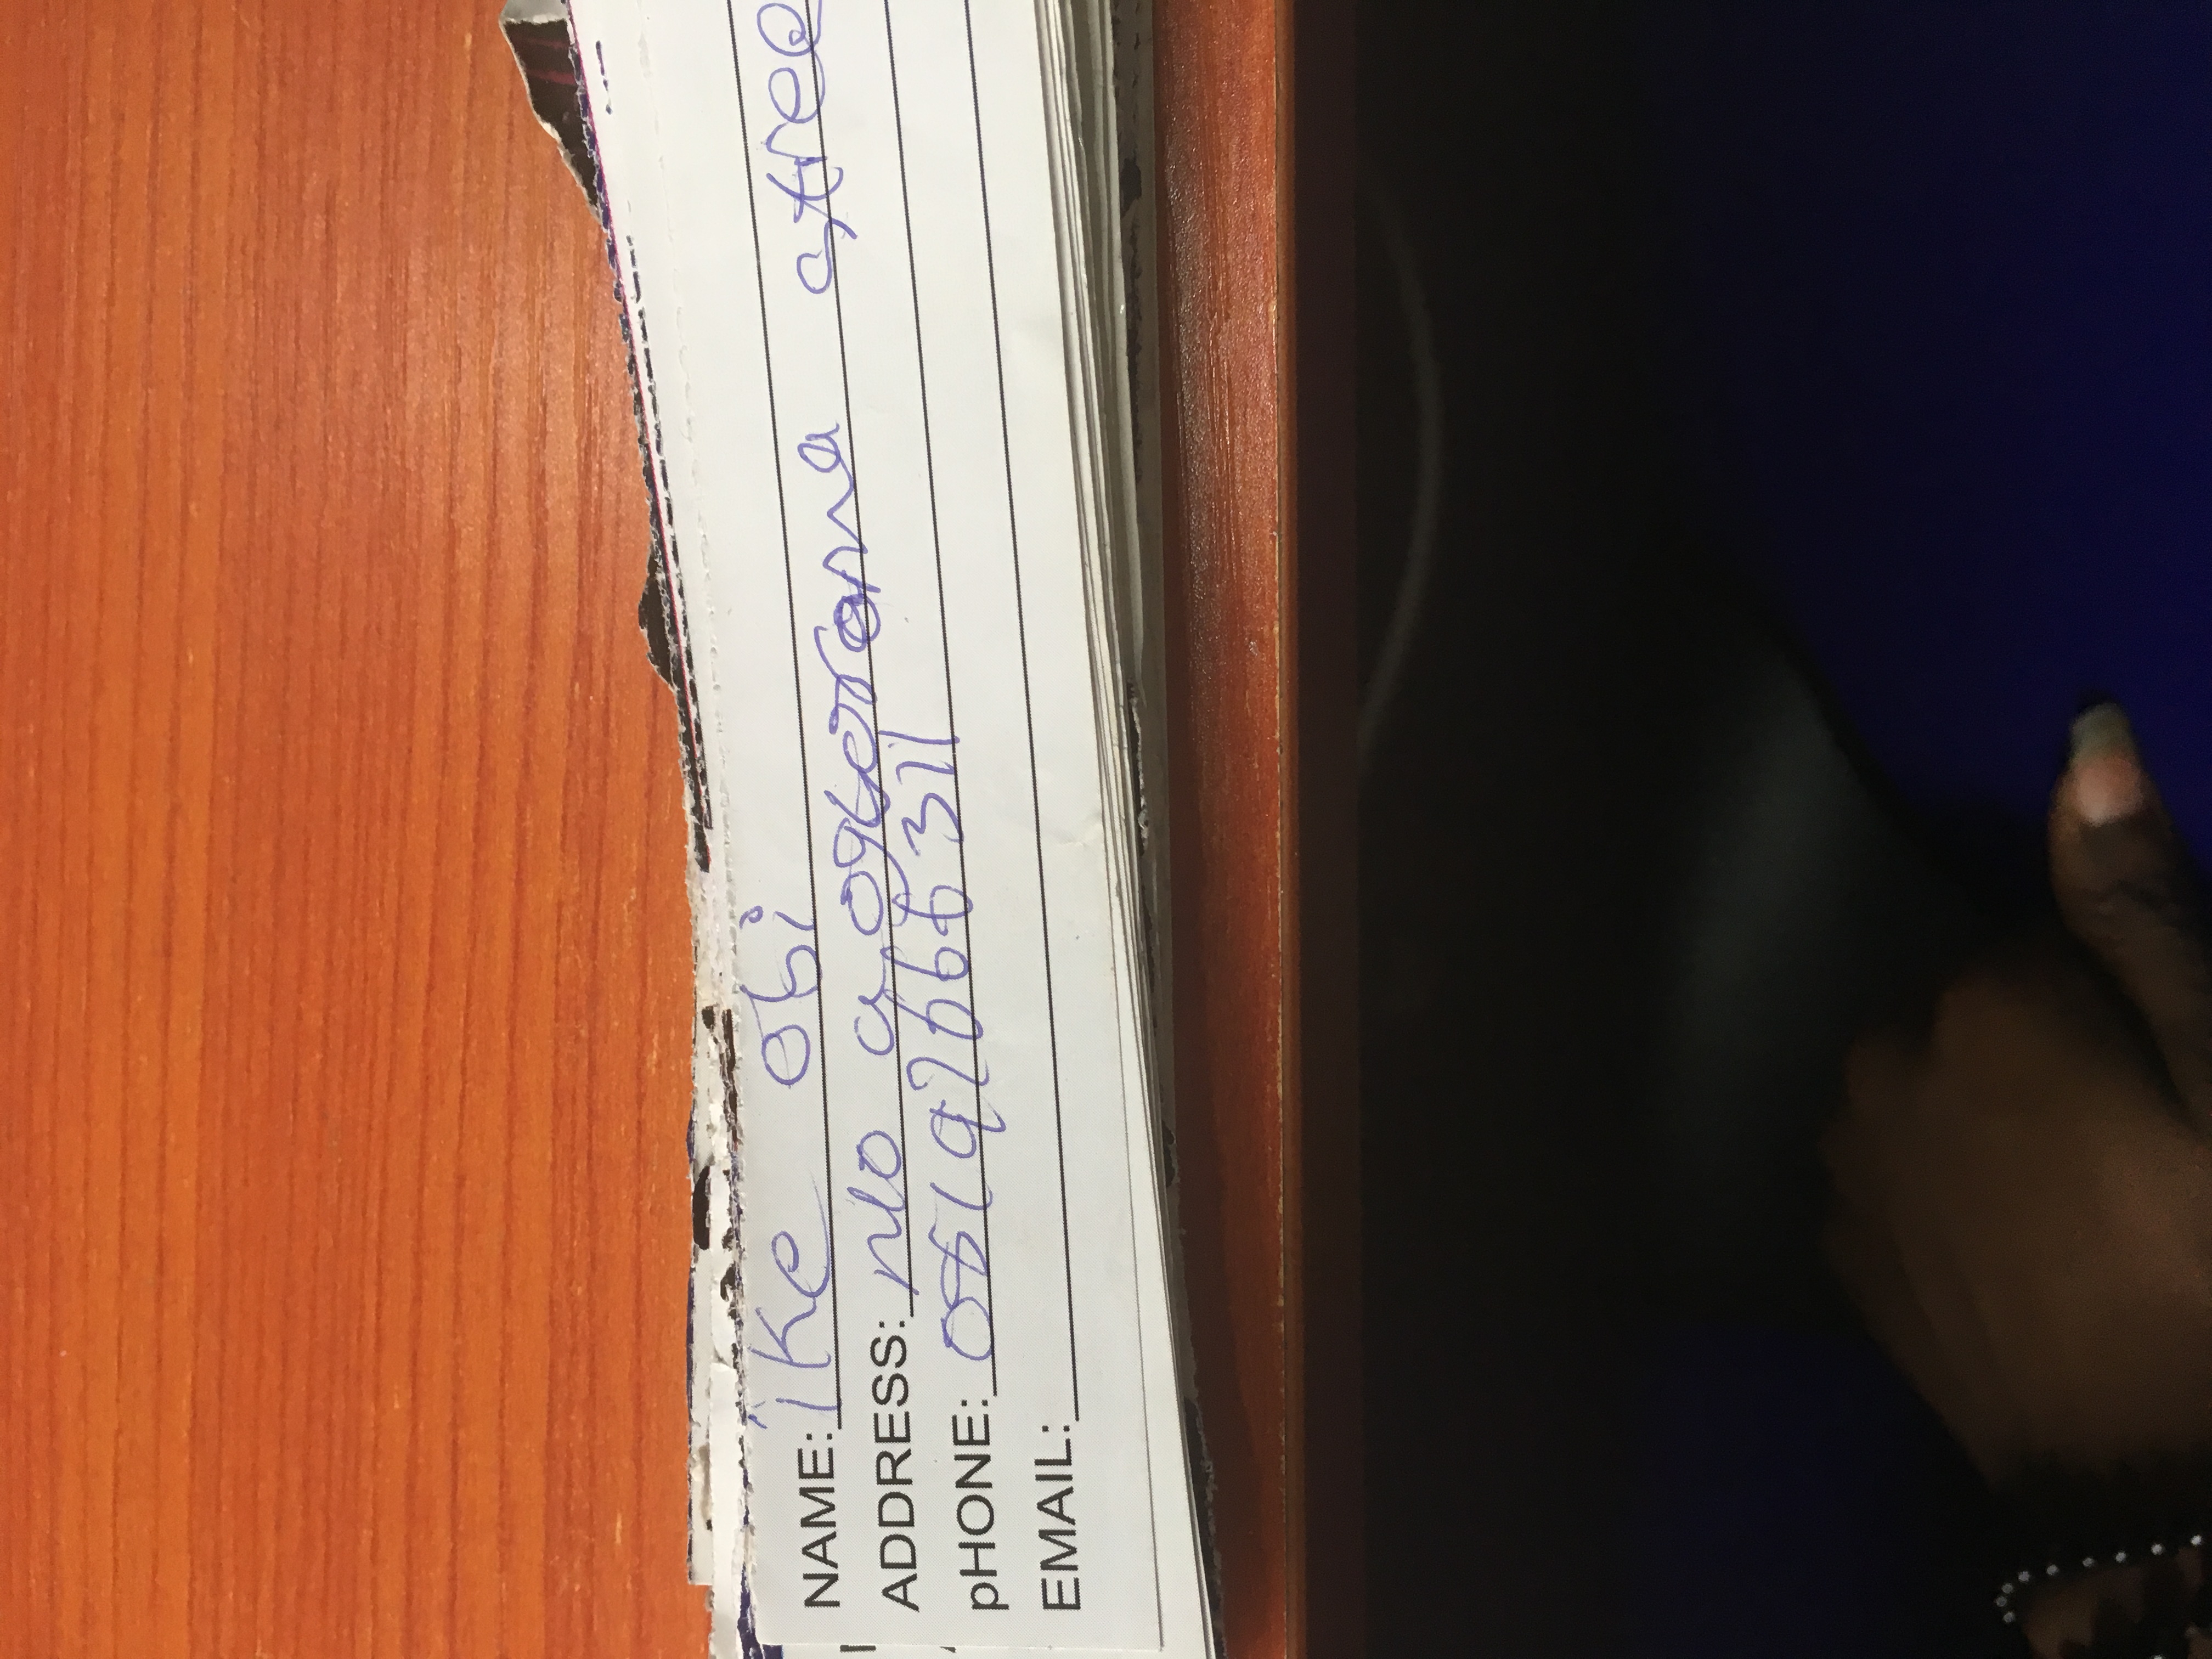 NAME: ike obi
ADDRESS: No a ogborana stree
pHONE: 08192666371
EMAIL: